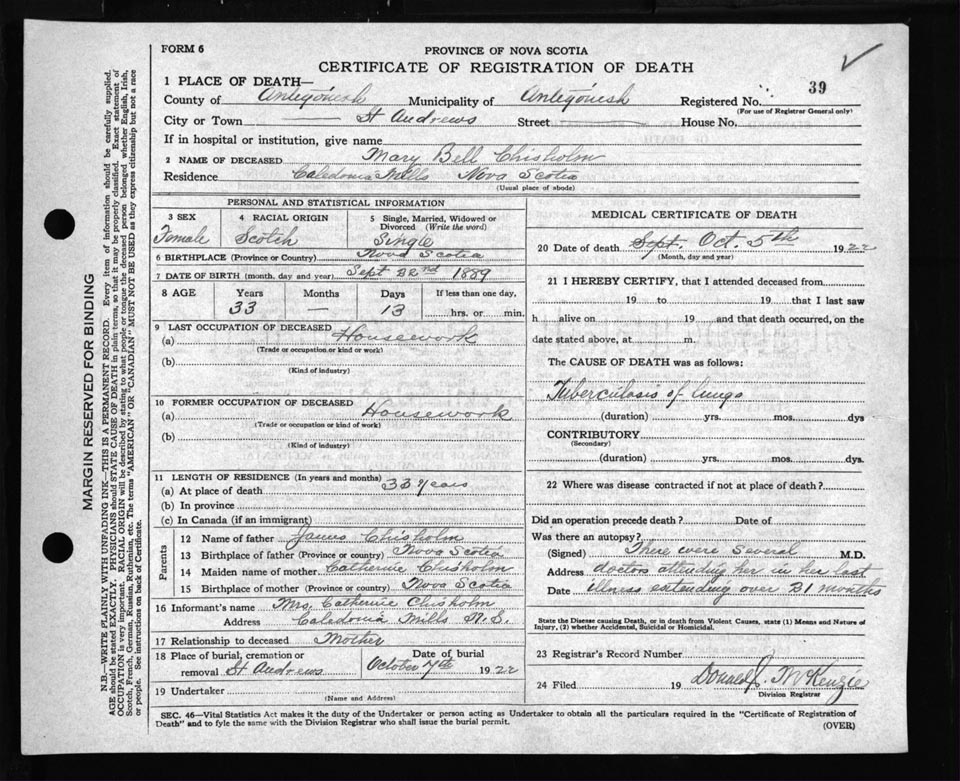 FORM 6
PROVINCE OF NOVA SCOTIA
CERTIFICATE OF REGISTRATION OF DEATH
39
1 PLACE OF DEATH—
County of Antigonish Municipality of Antigonish Registered No.
(For use of Registrar General only)
City or Town St Andrews Street House No.
If in hospital or institution, give name
2 NAME OF DECEASED Mary Bell Chisholm
Residence Caledonia Mills Nova Scotia
(Usual place of abode)
PERSONAL AND STATISTICAL INFORMATION
3 SEX Female
4 RACIAL ORIGIN Scotch
5 Single, Married, Widowed or Divorced (Write the word) Single
6 BIRTHPLACE (Province or Country) Nova Scotia
7 DATE OF BIRTH (month, day and year) Sept 22nd 1889
8 AGE Years Months Days If less than one day,
33 — 13 hrs. or min.
9 LAST OCCUPATION OF DECEASED
(a) Housework
(Trade or occupation or kind or work)
(b)
(Kind of industry)
10 FORMER OCCUPATION OF DECEASED
(a) Housework
(Trade or occupation or kind of work)
(b)
(Kind of industry)
11 LENGTH OF RESIDENCE (In years and months)
(a) At place of death 33 years
(b) In province
(c) In Canada (if an immigrant)
Parents
12 Name of father James Chisholm
13 Birthplace of father (Province or country) Nova Scotia
14 Maiden name of mother Catherine Chisholm
15 Birthplace of mother (Province or country) Nova Scotia
16 Informant's name Mrs. Catherine Chisholm
Address Caledonia Mills N.S.
17 Relationship to deceased Mother
18 Place of burial, cremation or removal St Andrews
Date of burial October 7th 1922
19 Undertaker
(Name and Address)
MEDICAL CERTIFICATE OF DEATH
20 Date of death Sept. Oct. 5th 1922
(Month, day and year)
21 I HEREBY CERTIFY, that I attended deceased from
19 to 19 that I last saw
h alive on 19 and that death occurred, on the
date stated above, at m.
The CAUSE OF DEATH was as follows:
Tuberculosis of lungs
(duration) yrs. mos. dys
CONTRIBUTORY
(Secondary)
(duration) yrs. mos. dys.
22 Where was disease contracted if not at place of death?
Did an operation precede death? Date of
Was there an autopsy?
(Signed) There were several M.D.
Address doctors attending her in her last
Date illness extending over 21 months
State the Disease causing Death, or in death from Violent Causes, state (1) Means and Nature of
Injury, (2) whether Accidental, Suicidal or Homicidal.
23 Registrar's Record Number
24 Filed 19 Donald J. McKenzie
Division Registrar
SEC. 46—Vital Statistics Act makes it the duty of the Undertaker or person acting as Undertaker to obtain all the particulars required in the "Certificate of Registration of
Death" and to fyle the same with the Division Registrar who shall issue the burial permit.
(OVER)
MARGIN RESERVED FOR BINDING
N.B.—WRITE PLAINLY WITH UNFADING INK—THIS IS A PERMANENT RECORD. Every item of information should be carefully supplied.
AGE should be stated EXACTLY. PHYSICIANS should STATE CAUSE OF DEATH in plain terms, so that it may be properly classified. Exact statement of
OCCUPATION is very important. RACIAL ORIGIN will be described by stating to what people or tongue the deceased person belonged, whether English, Irish,
Scotch, French, German, Russian, Ruthenian, etc. The terms "AMERICAN" OR "CANADIAN" MUST NOT BE USED as they express citizenship but not a race
or people. See instructions on back of Certificate.